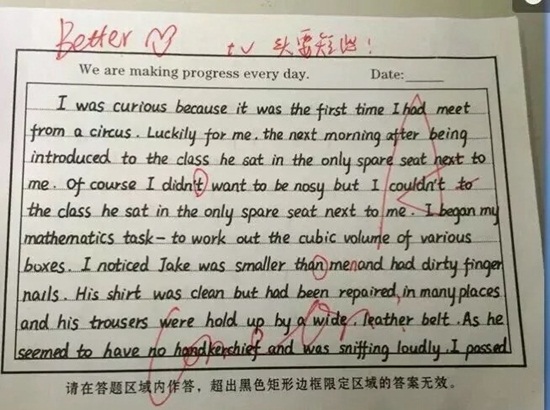 Better
tv 头要短些!
We are making progress every day. Date:
I was curious because it was the first time I had meet
from a circus. Luckily for me. the next morning after being
introduced to the class he sat in the only spare seat next to
me. Of course I didn't want to be nosy but I couldn't to
the class he sat in the only spare seat next to me. I began my
mathematics task- to work out the cubic volume of various
boxes. I noticed Jake was smaller than men and had dirty finger
nails. His shirt was clean but had been repaired, in many places
and his trousers were hold up by a wide. leather belt. As he
seemed to have no handkerchief and was sniffing loudly. I passed
请在答题区域内作答，超出黑色矩形边框限定区域的答案无效。